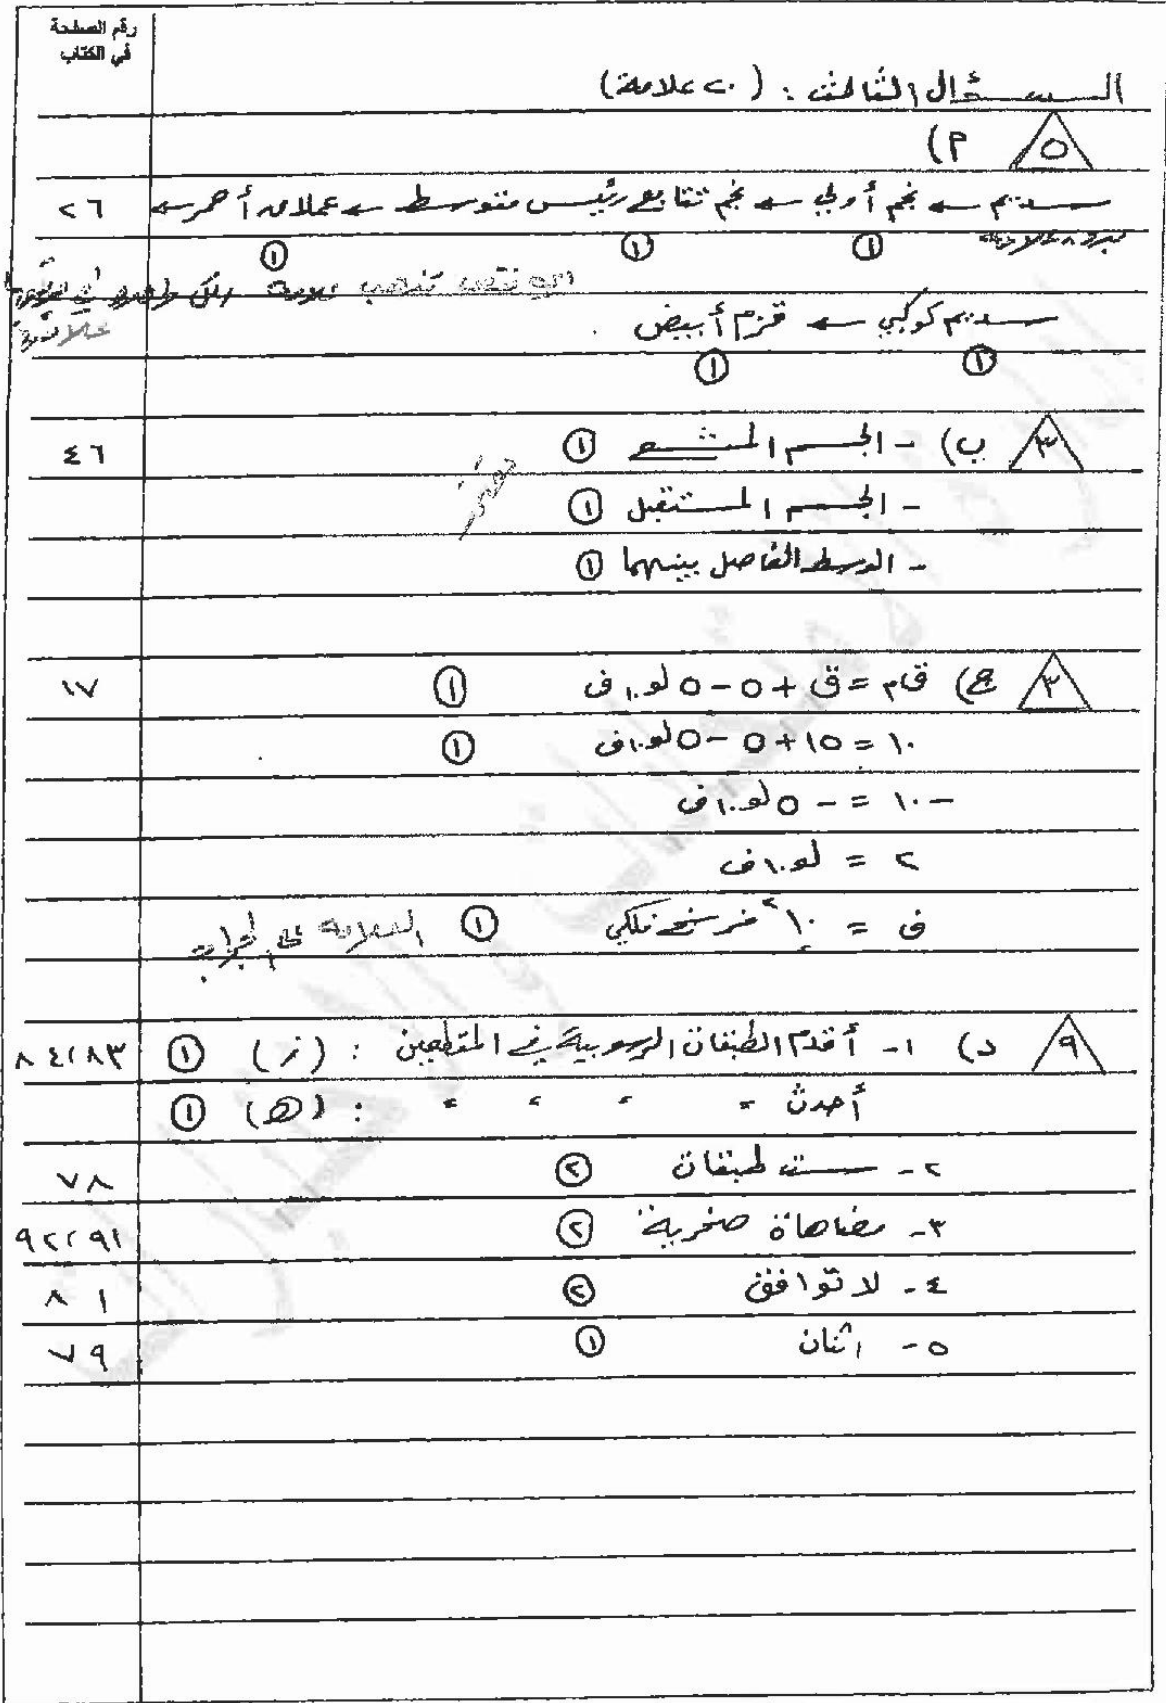 رقم الصفحة
في الكتاب
السؤال الثالث : (٢٠ علامة)
٥ أ)
سديم ← نجم أولي ← نجم تتابع رئيس متوسط ← عملاق أحمر ← ٢٦
١ ١ ١
علامة
سديم كوكبي ← قزم أبيض .
١ ١
٣ ب) - الجسم المشع ١ ٤٦
- الجسم المستقبل ١
- الوسط الفاصل بينهما ١
٣ ج) ق م = ق + ٥ - ٥ لو١٠ ف ١ ١٧
١٠ = ١٥ + ٥ - ٥ لو١٠ ف ١
-١٠ = - ٥ لو١٠ ف
٢ = لو١٠ ف
ف = ١٠^٢ فرسخ فلكي ١ العلامة على الجواب
٩ د) ١- أقدم الطبقات الرسوبية في المقطعين : (ز) ١ ٨٣، ٨٤
أحدث = = = = : (هـ) ١
٢- ست طبقات ٢ ٧٨
٣- مضاهاة صخرية ٢ ٩١، ٩٢
٤- لا توافق ٢ ٨١
٥- اثنان ١ ٧٩